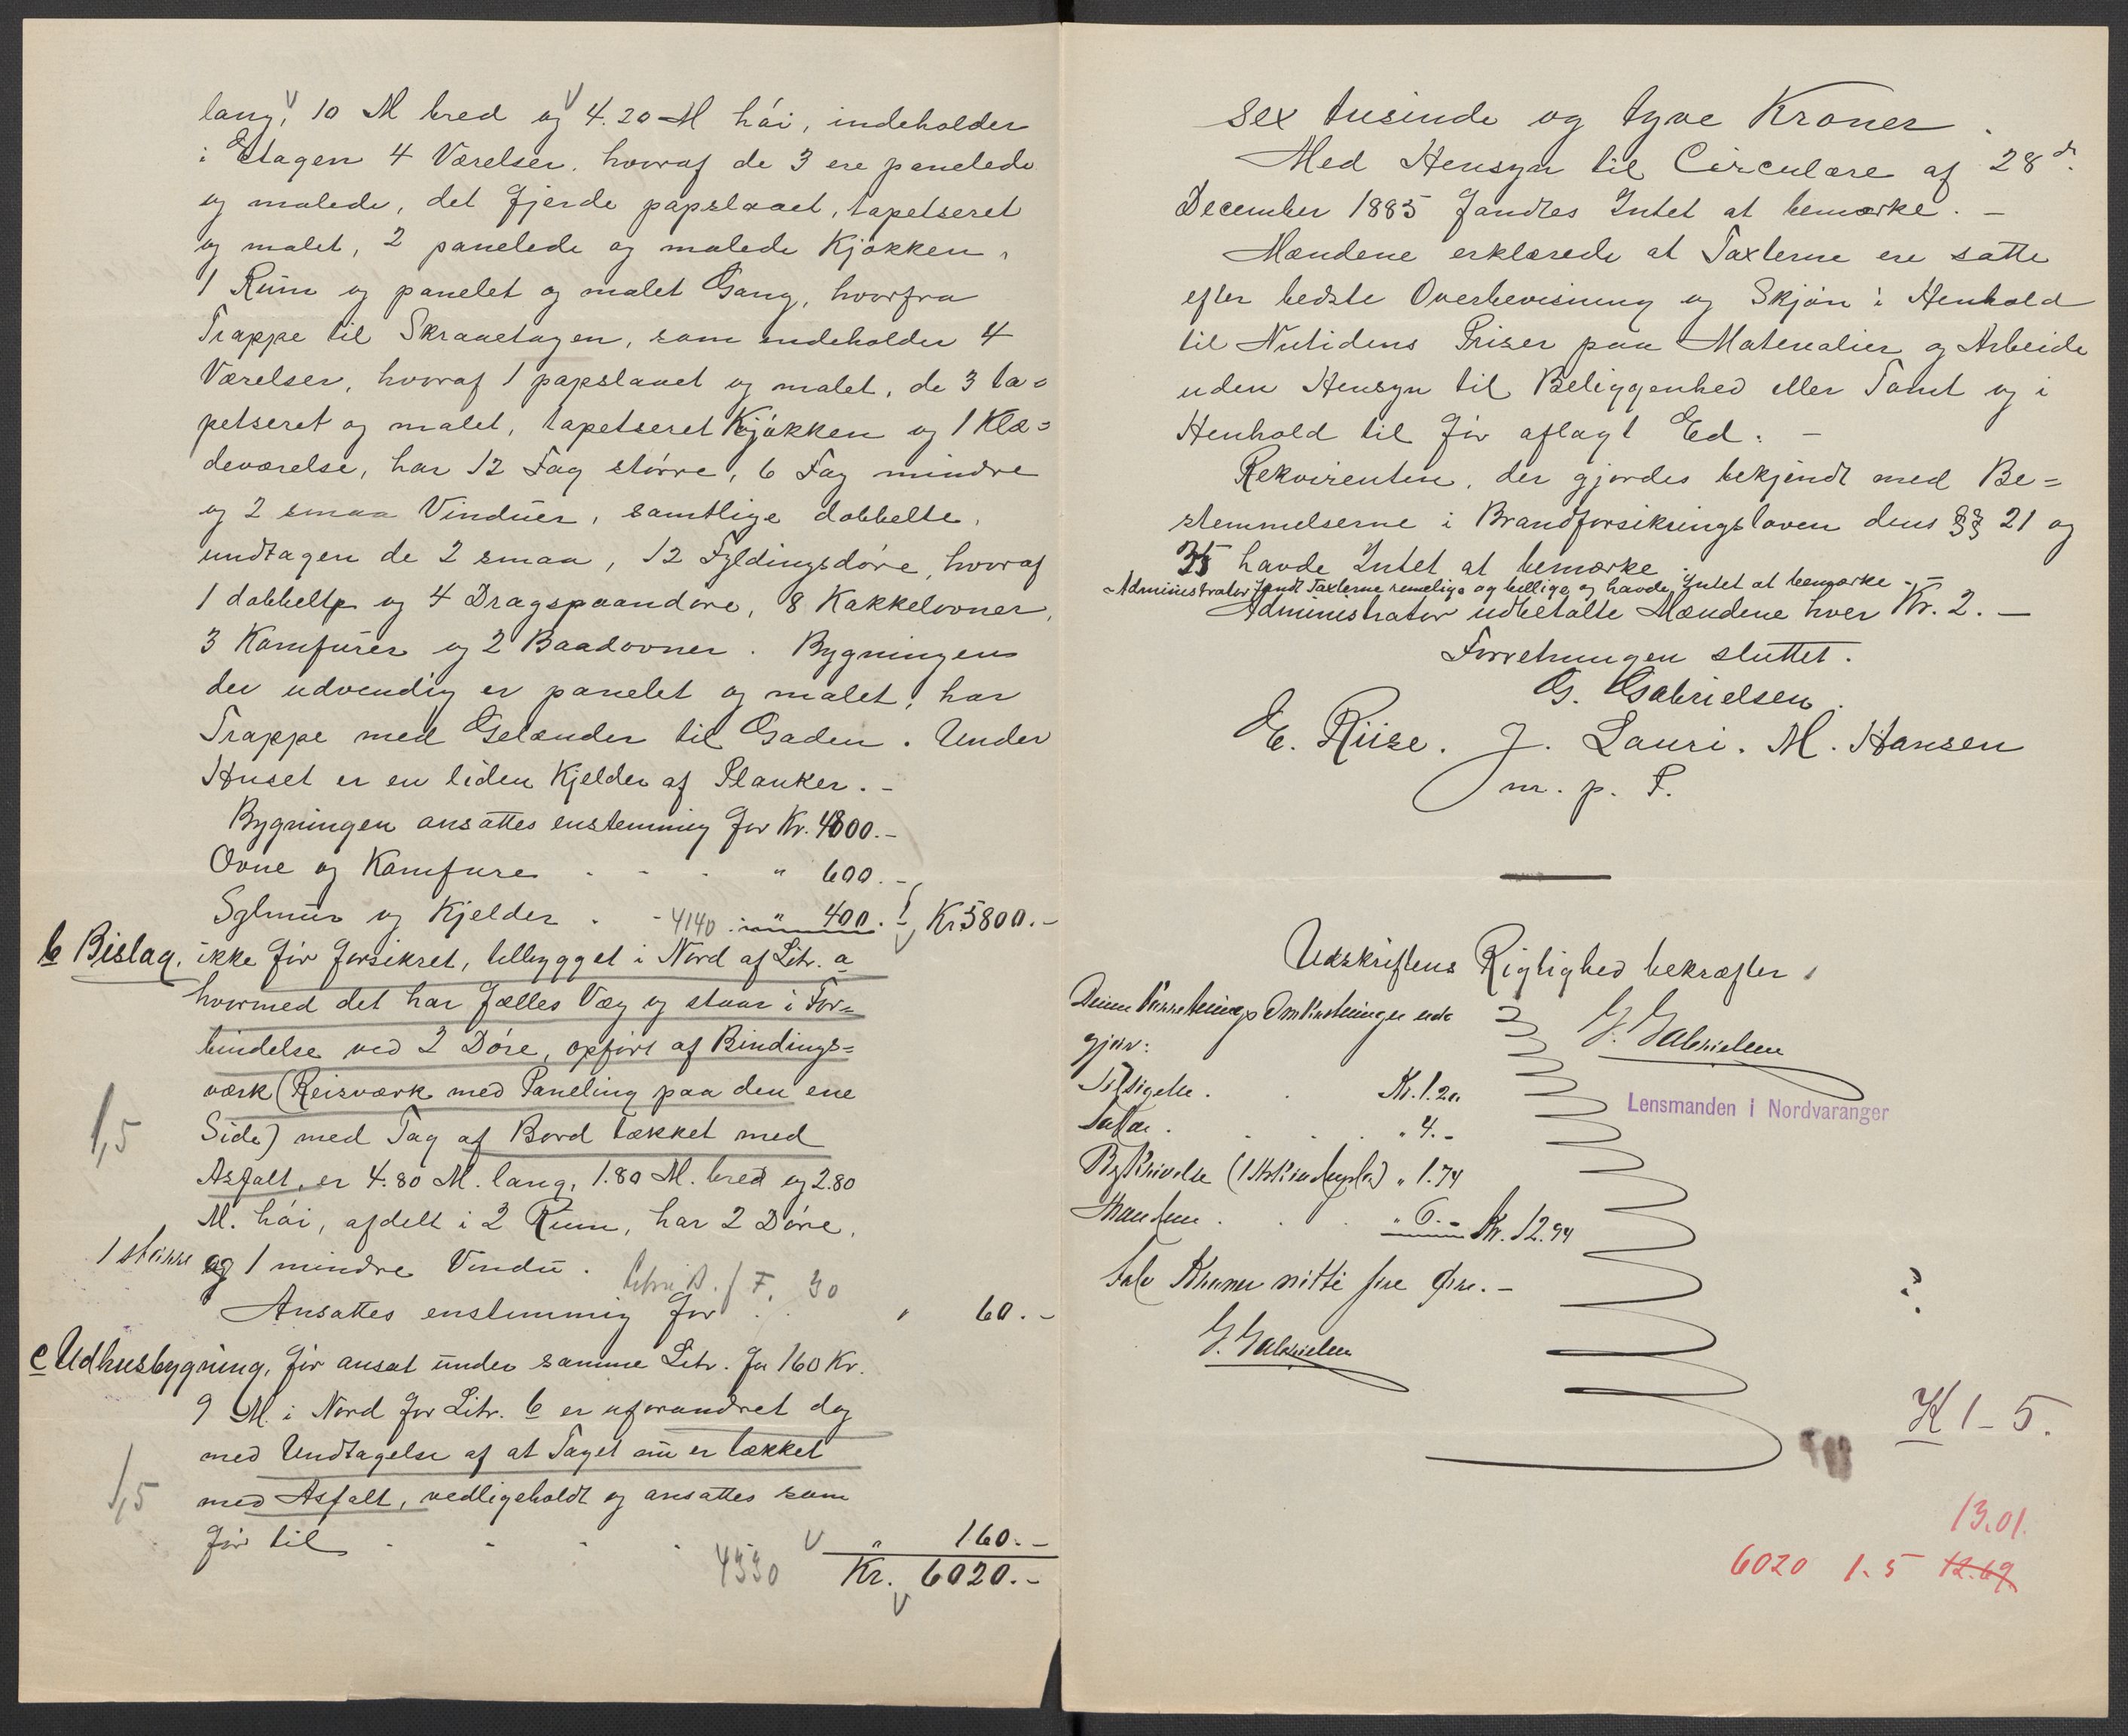 lang, 10 M bred og 4.20 M hói, indeholder
i Etagen 4 Værelser, hvoraf de 3 ere panelede
og malede, det fjerde papslaaet, tapetseret
og malet, 2 panelede og malede Kjøkken,
1 Rum og panelet og malet Gang, hvorfra
Trappe til Skraaetagen, som indeholder 4
Værelser, hvoraf 1 papslaaet og malet, de 3 ta=
petseret og malet, tapetseret Kjøkken og 1 Klæ=
deværelse, har 12 Fag større, 6 Fag mindre
og 2 smaa Vinduer, samtlige dobbelte,
undtagen de 2 smaa, 12 Fyldingsdøre, hvoraf
1 dobbelte og 4 Dragspaandøre, 8 Kakkelovner,
3 Komfurer og 2 Baadovner. Bygningen
der udvendig er panelet og malet, har
Trappe med Gelænder til Gaden. Under
Huset er en liden Kjelder af Planker. -
Bygningen ansattes enstemmig for Kr. 4800.-
Ovne og Komfurer - - . " 600.-
Sylmur og Kjelder . - 4140 . " 400.- Kr 5800.-
b Bislag, ikke før forsikret, tilbygget i Nord af Litr. a
hvormed det har fælles Væg og staar i For=
bindelse ved 2 Døre, opført af Bindings=
værk (Reisværk med Paneling paa den ene
1,5 Side) med Tag af Bord tækket med
Asfalt, er 4.80 M. lang, 1.80 M. bred og 2.80
M. hói, afdelt i 2 Rum, har 2 Døre,
1 større og 1 mindre Vindu. F. 30
Ansattes enstemmig for . . " 60.-
c Udhusbygning, før ansat under samme Litr. for 160 Kr.
9 M. i Nord for Litr. b er uforandret dog
med Undtagelse af at Taget nu er tækket
1,5 med Asfalt, vedligeholdt og ansattes som
før til - - - - " 160.-
4330 Kr. 6020.-
sex tusinde og tyve Kroner.
Med Hensyn til Circulære af 28de
December 1885 fandtes Intet at bemærke. -
Mændene erklærede at Taxterne ere satte
efter bedste Overbevisning og Skjøn i Henhold
til Nutidens Priser paa Materialier og Arbeide
uden Hensyn til Beliggenhed eller Tomt og i
Henhold til før aflagt Ed. -
Rekvirenten, der gjordes bekjendt med Be=
stemmelserne i Brandforsikringsloven dens §§ 21 og
35 havde Intet at bemærke.
Administrator fandt Taxterne rimelige og billige og havde Intet at bemærke. -
Administrator udbetalte Mændene hver Kr. 2. -
Forretningen sluttet.
G. Gabrielsen.
E. Riise. J. Lauri. M. Hansen
m. p. P.
Udskriftens Rigtighed bekræfter,
G. Gabrielsen
Lensmanden i Nordvaranger
Denne Forretnings Omkostninger ud=
gjør:
Tilsigelse . . Kr. 1.20
Takst . . . . " 4.-
Beskrivelse " 1.74
Mændene . . . " 6.- Kr. 12.94
Tolv Kroner nitti fire Øre. -
G. Gabrielsen
?
K 1-5.
13.01.
6020 1.5 12.69